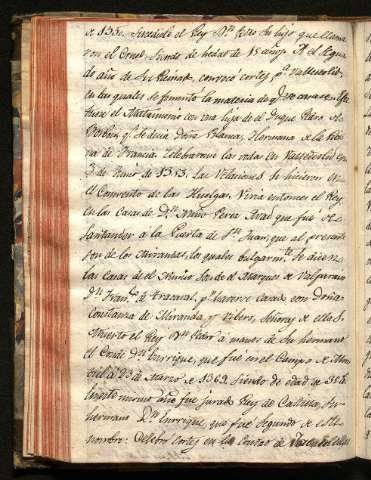 de 1350. Sucediole el Rey Dn. Pedro su hijo que llama
ron el Cruel, siendo de hedad de 15 años. Al segun
do año de su Reinado, convoco cortes pa. Valladolid,
en las quales se fomentó la materia de qe. se
tuase el Matrimonio con una hija de el Duque Pedro de
Borbon, qe. se decia Doña Blanca, Hermana de la Rei
na de Francia. Celebraronse las vodas en Valladolid en
3 de Junio de 1353. Las Velaciones se hicieron en
el Convento de las Huelgas. Vivia entonces el Rey
en las Casas de Dn. Nuño Perez Abad que fue de
Santander a la Puerta de Sn. Juan, que al presente
son de los los quales vulgarmte. se dicen
las Casas de el Muñico son de el Marques de Valparaiso
Dn. Franco. de pr. haverse casado con Doña
Constanza de Miranda, y Vibero, Señora de ellas.
Muerto el Rey Dn. Pedro a manos de su hermano
el Conde Dn. Enrrique, que fue en el Campo de Mon
tiel a 23 de Marzo de 1369. siendo de edad de 35 as.
año fue jurado Rey de Castilla, su
hermano Dn. Enrrique, que fue Segundo de este
nombre: Celebró Cortes en la Ciudad de